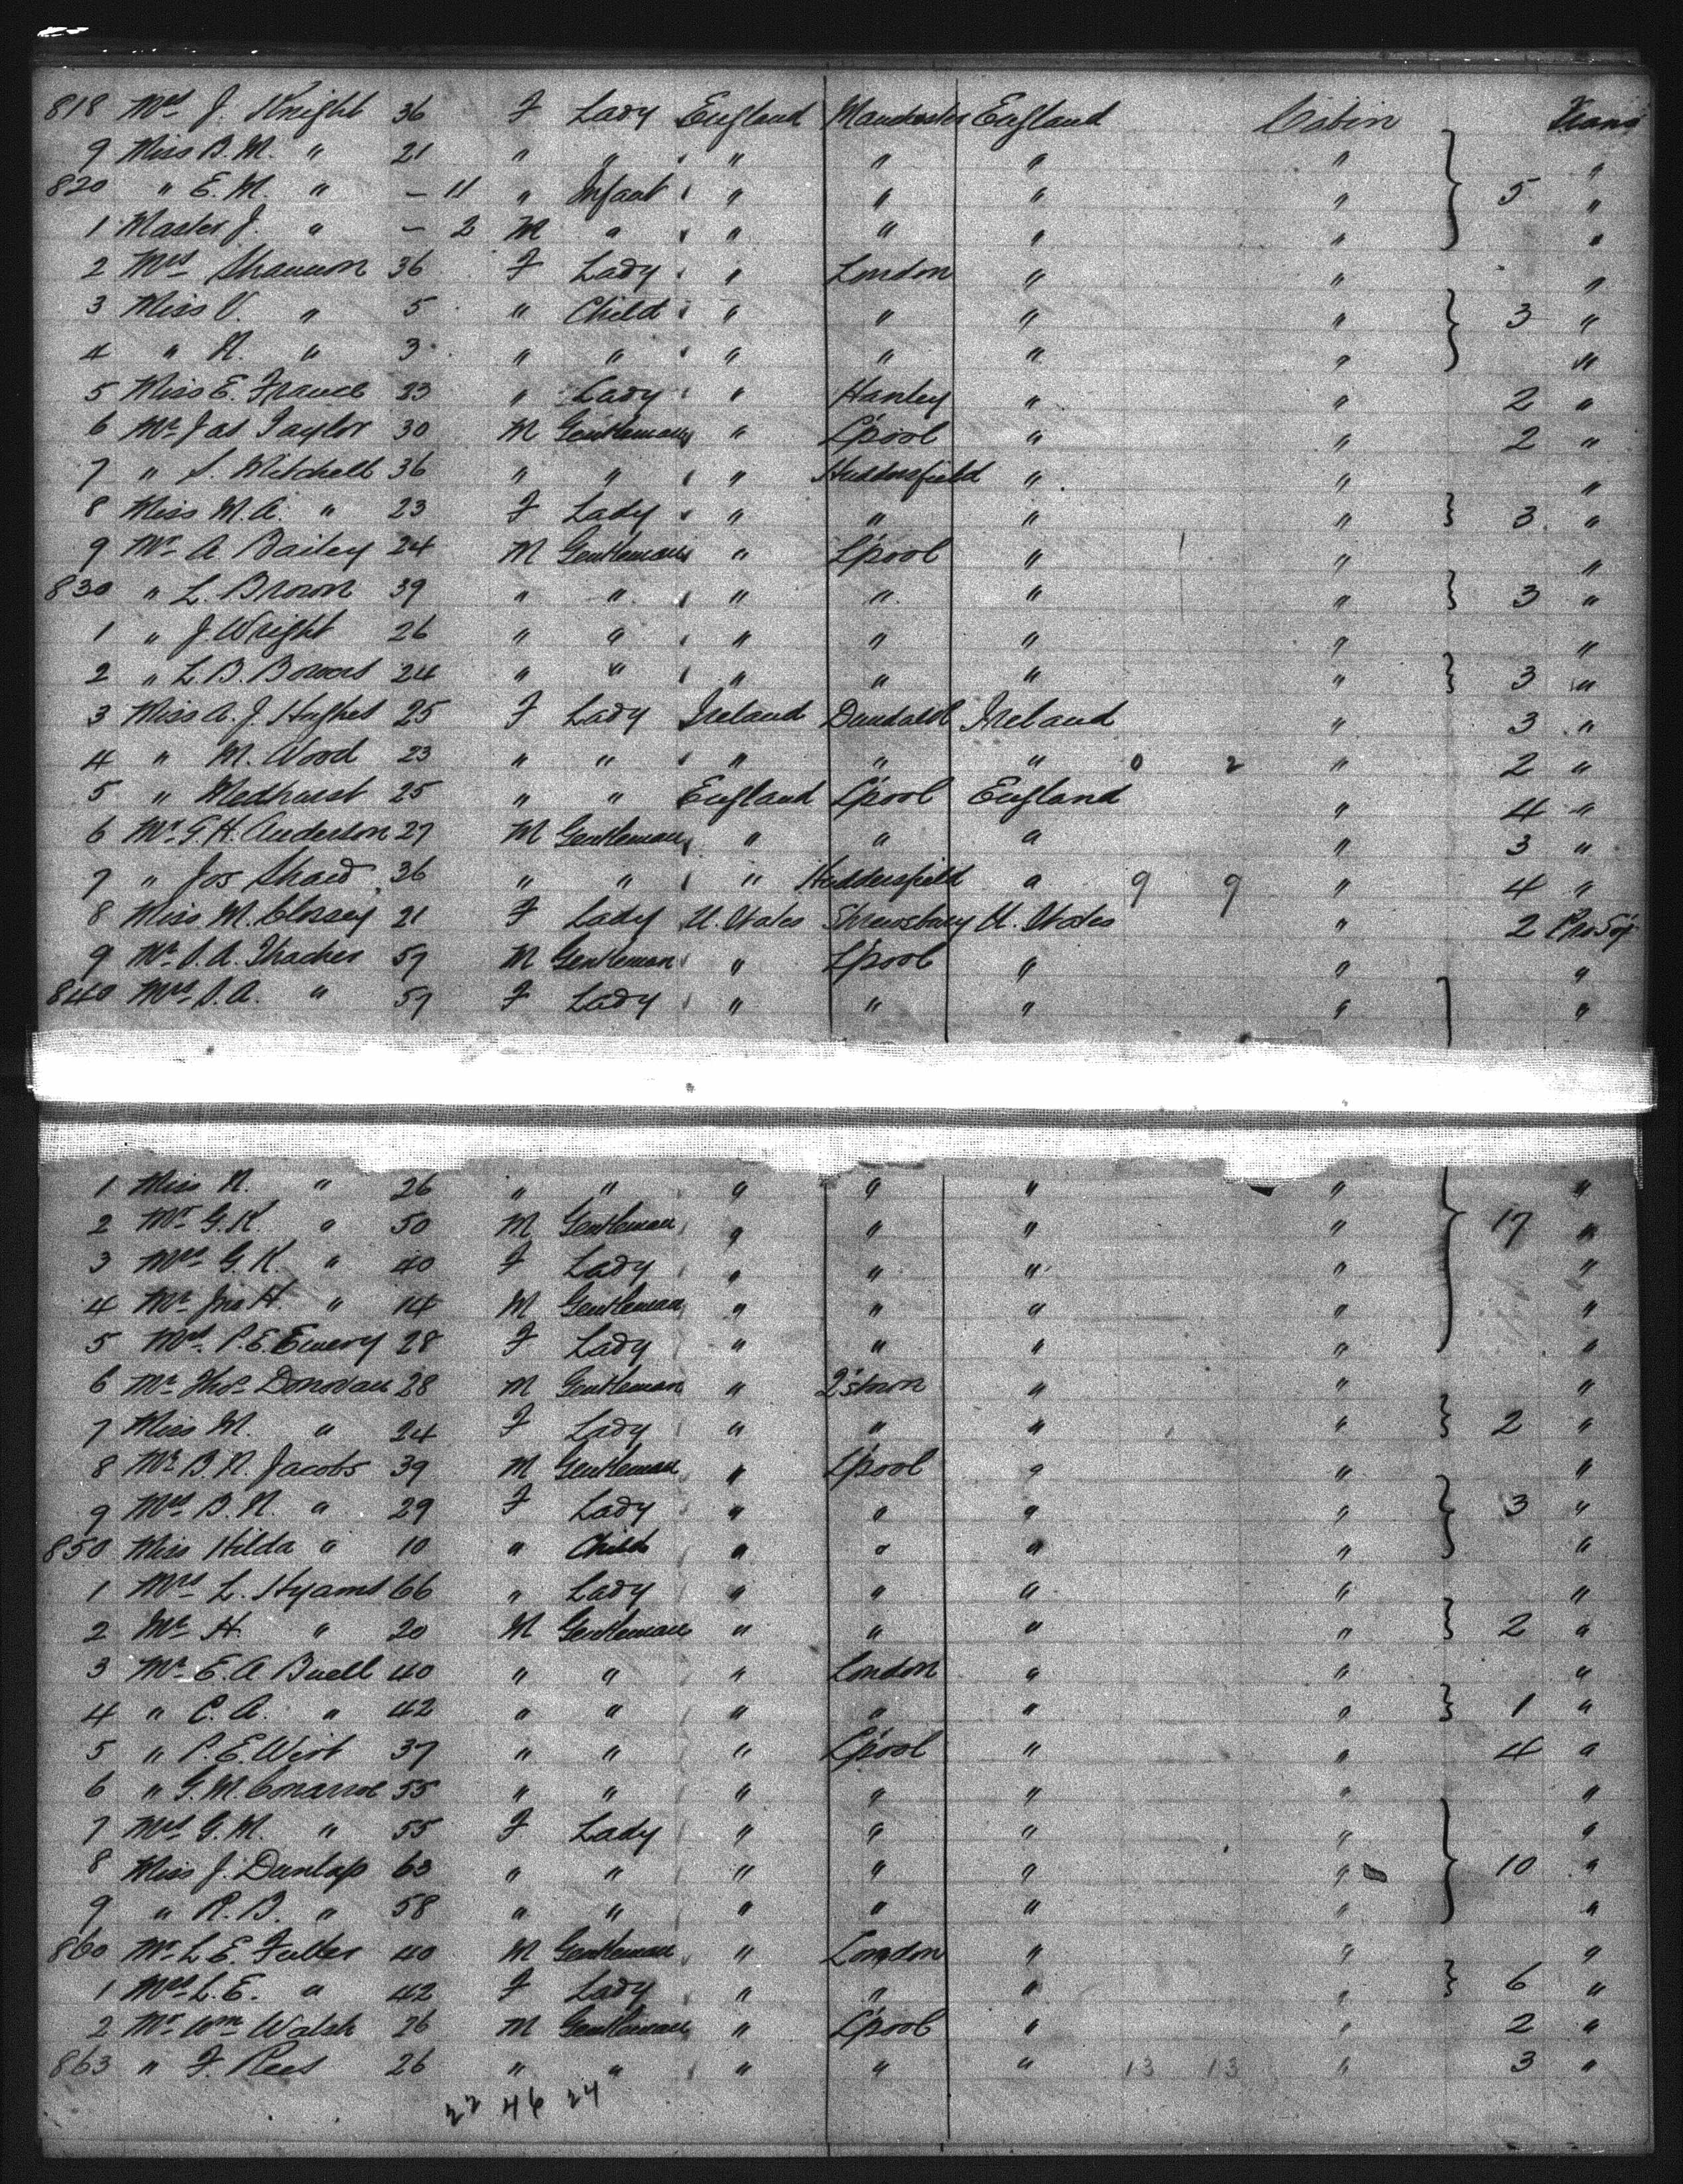 818 Mrs J. Knight 36 F Lady England Manchester England Cabin Trans
9 Miss B. M. " 21 " " " " " " "
820 " E. M. " – 11 " Infant " " " " 5 "
1 Master J. " – 2 M " " " " " "
2 Mrs Shannon 36 F Lady " London " " "
3 Miss V. " 5 " Child " " " " 3 "
4 " N. " 3 " " " " " " "
5 Miss E. France 23 " Lady " Hanley " " 2 "
6 Mr Jas Taylor 30 M Gentleman " L'pool " " 2 "
7 " S. Mitchell 36 " " " Huddersfield " " "
8 Miss M. A. " 23 F Lady " " " " 3 "
9 Mr A Bailey 24 M Gentleman " L'pool " " "
830 " L. Brown 39 " " " " " " 3 "
1 " J. Wright 26 " " " " " " "
2 " L. B. Bowers 24 " " " " " " 3 "
3 Miss A. J. Hughes 25 F Lady Ireland Dundalk Ireland " 3 "
4 " M. Wood 23 " " " " " 0 2 " 2 "
5 " Medhurst 25 " " England L'pool England " 4 "
6 Mr G. H. Anderson 27 M Gentleman " " " " 3 "
7 " Jos Shaw 36 " " " Huddersfield " 9 9 " 4 "
8 Miss M. Clossey 21 F Lady U. States Shrewsbury U. States " 2
9 Mr S. A. Thacher 57 M Gentleman " L'pool " " "
840 Mrs S. A. " 57 F Lady " " " " "
1 Miss N. " 26 " " " " " " "
2 Mr G. K. " 50 M Gentleman " " " " 17 "
3 Mrs G. K. " 40 F Lady " " " " "
4 Mr Jno H. " 14 M Gentleman " " " " "
5 Mrs P. E. Emery 28 F Lady " " " " "
6 Mr Thos Donovan 28 M Gentleman " Q'stown " " "
7 Miss M. " 24 F Lady " " " " 2 "
8 Mr B. N. Jacobs 39 M Gentleman " L'pool " " "
9 Mrs B. N. " 29 F Lady " " " " 3 "
850 Miss Hilda " 10 " Child " " " " "
1 Mrs L. Hyams 66 " Lady " " " " "
2 Mr H. " 20 M Gentleman " " " " 2 "
3 Mr E. A Buell 40 " " " London " " "
4 " C. A. " 42 " " " " " " 1 "
5 " P. E. Wirt 37 " " " L'pool " " 4 "
6 " G. M. Conarroe 55 " " " " " " "
7 Mrs G. M. " 55 F Lady " " " " "
8 Miss J. Dunlap 63 " " " " " " 10 "
9 " R. B. " 58 " " " " " " "
860 Mr L. E. Fuller 40 M Gentleman " London " " "
1 Mrs L. E. " 42 F Lady " " " " 6 "
2 Mr Wm Walsh 26 M Gentleman " L'pool " " 2 "
863 " F. Rees 26 " " " " " 13 13 " 3 "
22 46 24